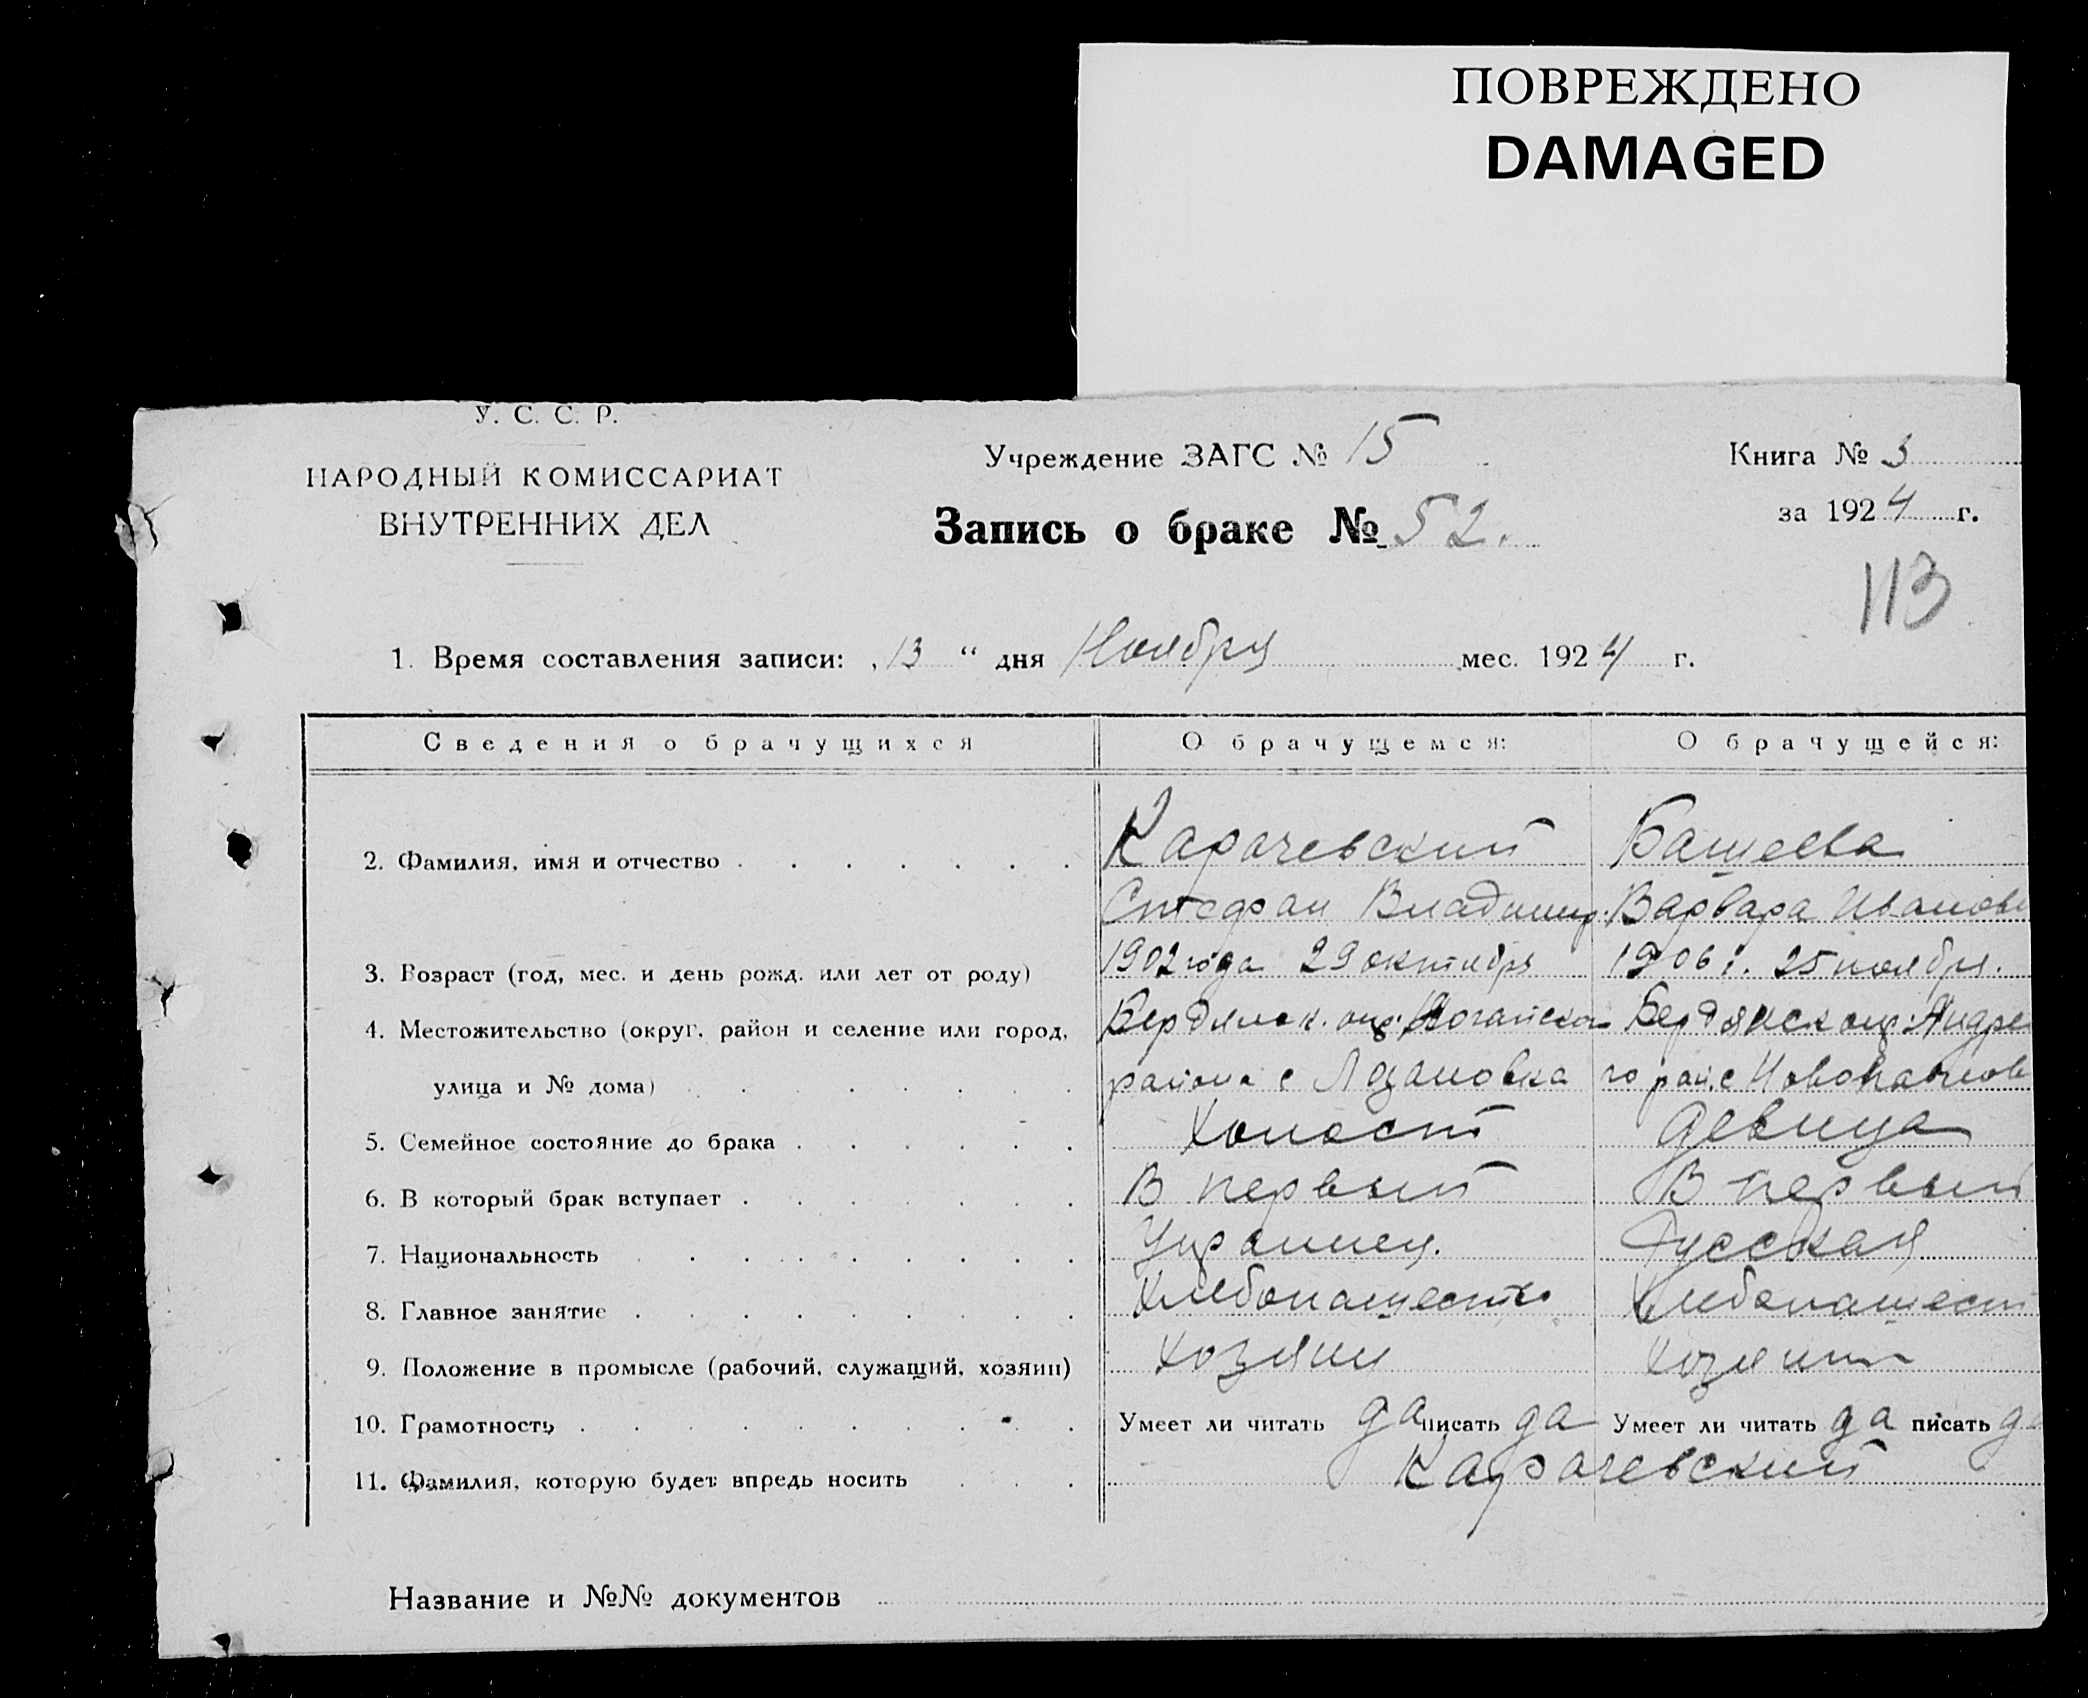 ПОВРЕЖДЕНО
DAMAGED
У. С. С. Р.
НАРОДНЫЙ КОМИССАРИАТ
ВНУТРЕННИХ ДЕЛ
Учреждение ЗАГС № 15
Запись о браке № 52.
Книга № 3
за 1924 г.
113
1. Время составления записи: „13 “ дня Ноября мес. 1924 г.
Сведения о брачущихся О брачущемся: О брачущейся:
2. Фамилия, имя и отчество Карачевский Башеева
Стефан Владимир. Варвара Иванов
3. Возраст (год, мес. и день рожд. или лет от роду) 1902 года 29 октября 1906 г. 25 ноября.
4. Местожительство (округ, район и селение или город, Бердянск. окр. Ногайского Бердянск окр. Андре
улица и № дома) района с Лозановка го рай. с Новопавлов
5. Семейное состояние до брака Холост девица
6. В который брак вступает В первый В первый
7. Национальность Украинец. Русская
8. Главное занятие Хлебопашество Хлебопашест
9. Положение в промысле (рабочий, служащий, хозяин) хозяин хозяин
10. Грамотность Умеет ли читать да писать да Умеет ли читать да писать да
11. Фамилия, которую будет впредь носить Карачевский
Название и №№ документов